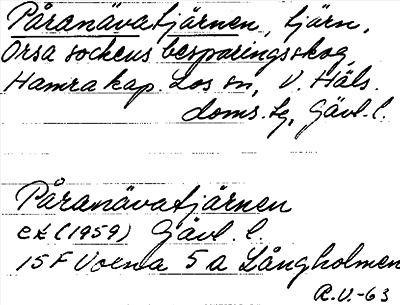 Påranävatjärnen, tjärn,
Orsa sockens besparingsskog,
Hamra kap. Los sn, V. Häls.
doms. tg, Gävl. l.
Påranävatjärnen
ek (1959) Gävl. l.
15F Voxna 5a Långholmen
R.U-63